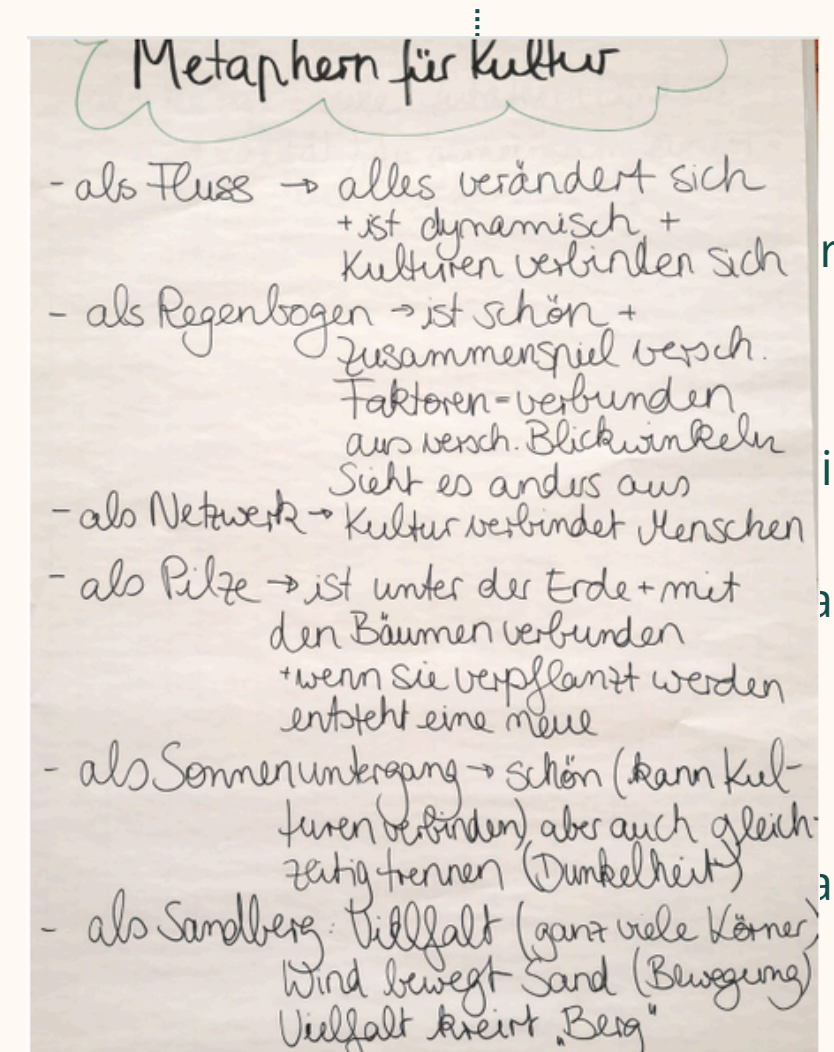 Metaphern für Kultur
- als Fluss → alles verändert sich
+ ist dynamisch +
Kulturen verbinden sich
- als Regenbogen → ist schön +
Zusammenspiel versch.
Faktoren = verbunden
aus versch. Blickwinkeln
Sieht es anders aus
- als Netzwerk → Kultur verbindet Menschen
- als Pilze → ist unter der Erde + mit
den Bäumen verbunden
+ wenn sie verpflanzt werden
entsteht eine neue
- als Sonnenuntergang → schön (kann Kul-
turen verbinden) aber auch gleich-
zeitig trennen (Dunkelheit)
- als Sandberg: Vielfalt (ganz viele Körner)
Wind bewegt Sand (Bewegung)
Vielfalt kreirt „Berg"